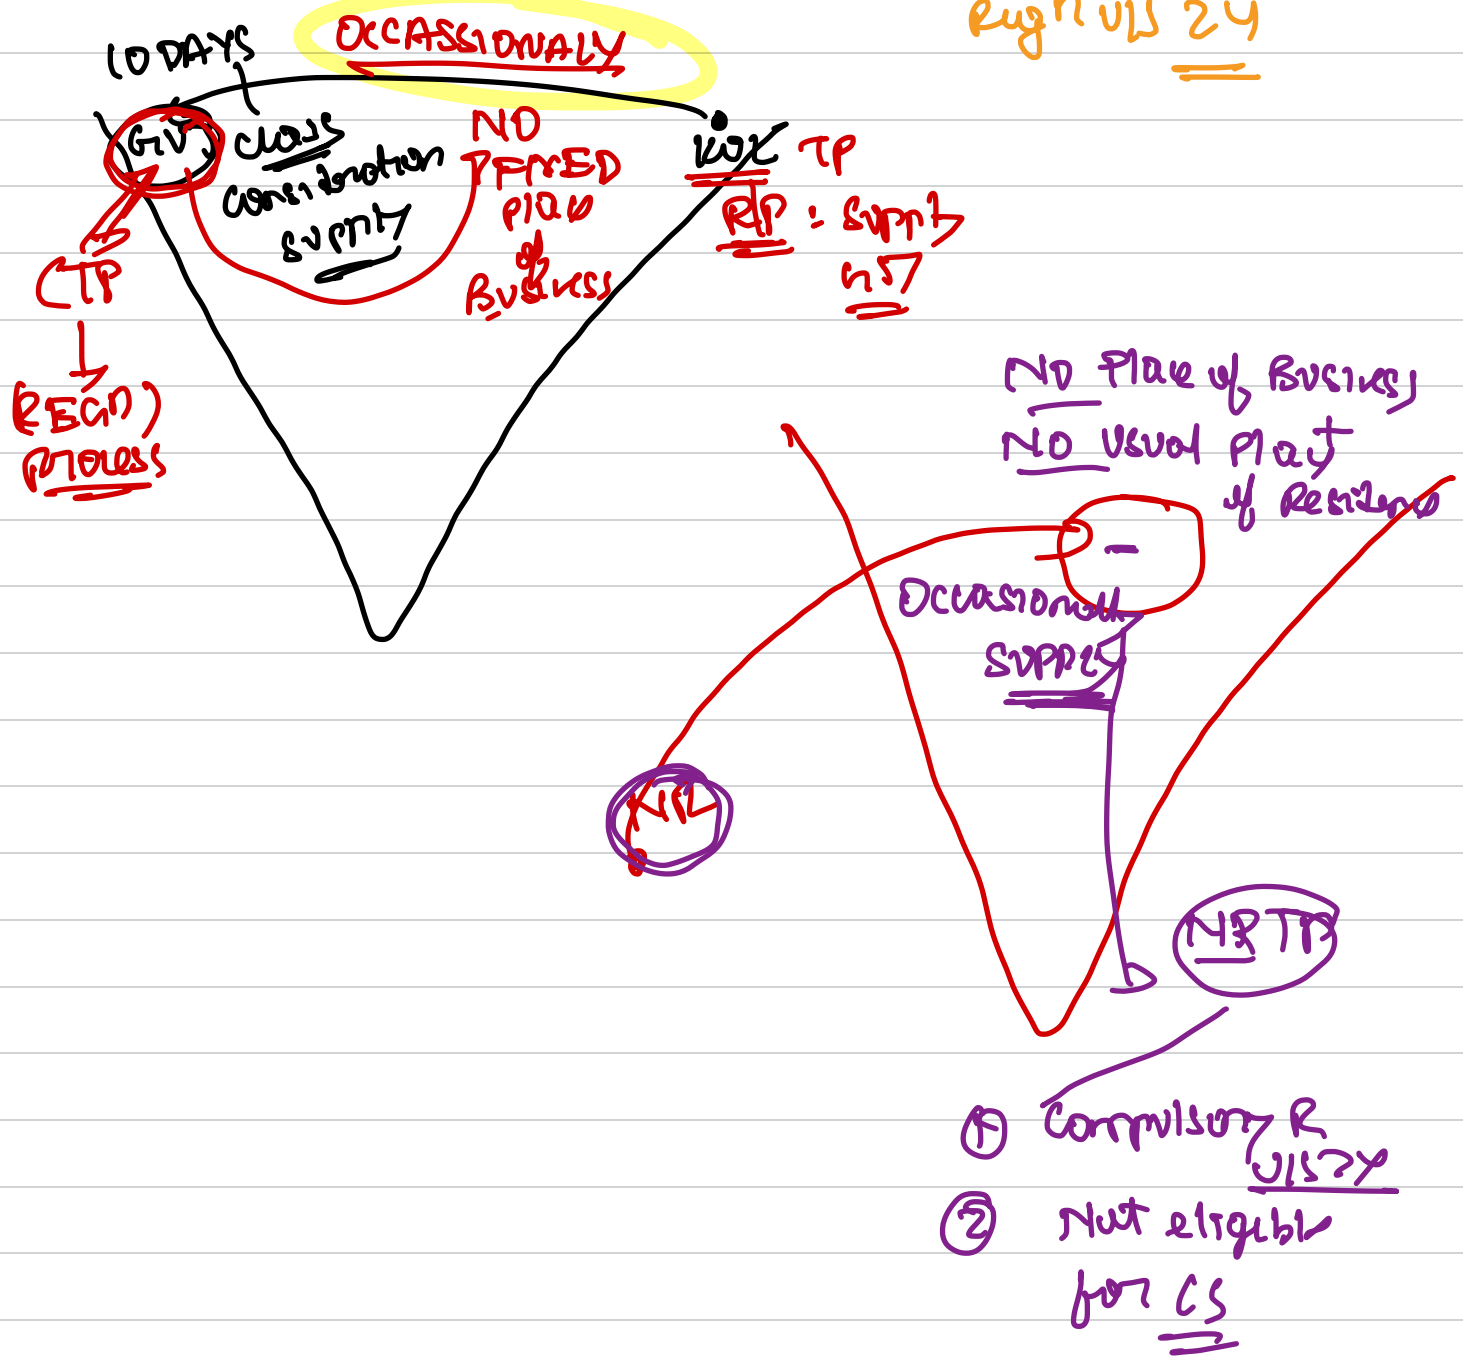 Regn U/S 24
OCCASSIONALY
10 DAYS
GUJ
class
consideration
supply
NO
FIXED
place
of
Business
KOL TP
R/P : supply
GST
CTP
(REGN)
process
NO Place of Business
NO Usual Place
of Residence
Occasionally
SUPPLY
NRTP
① Compulsory R
U/S 24
② Not eligible
for CS